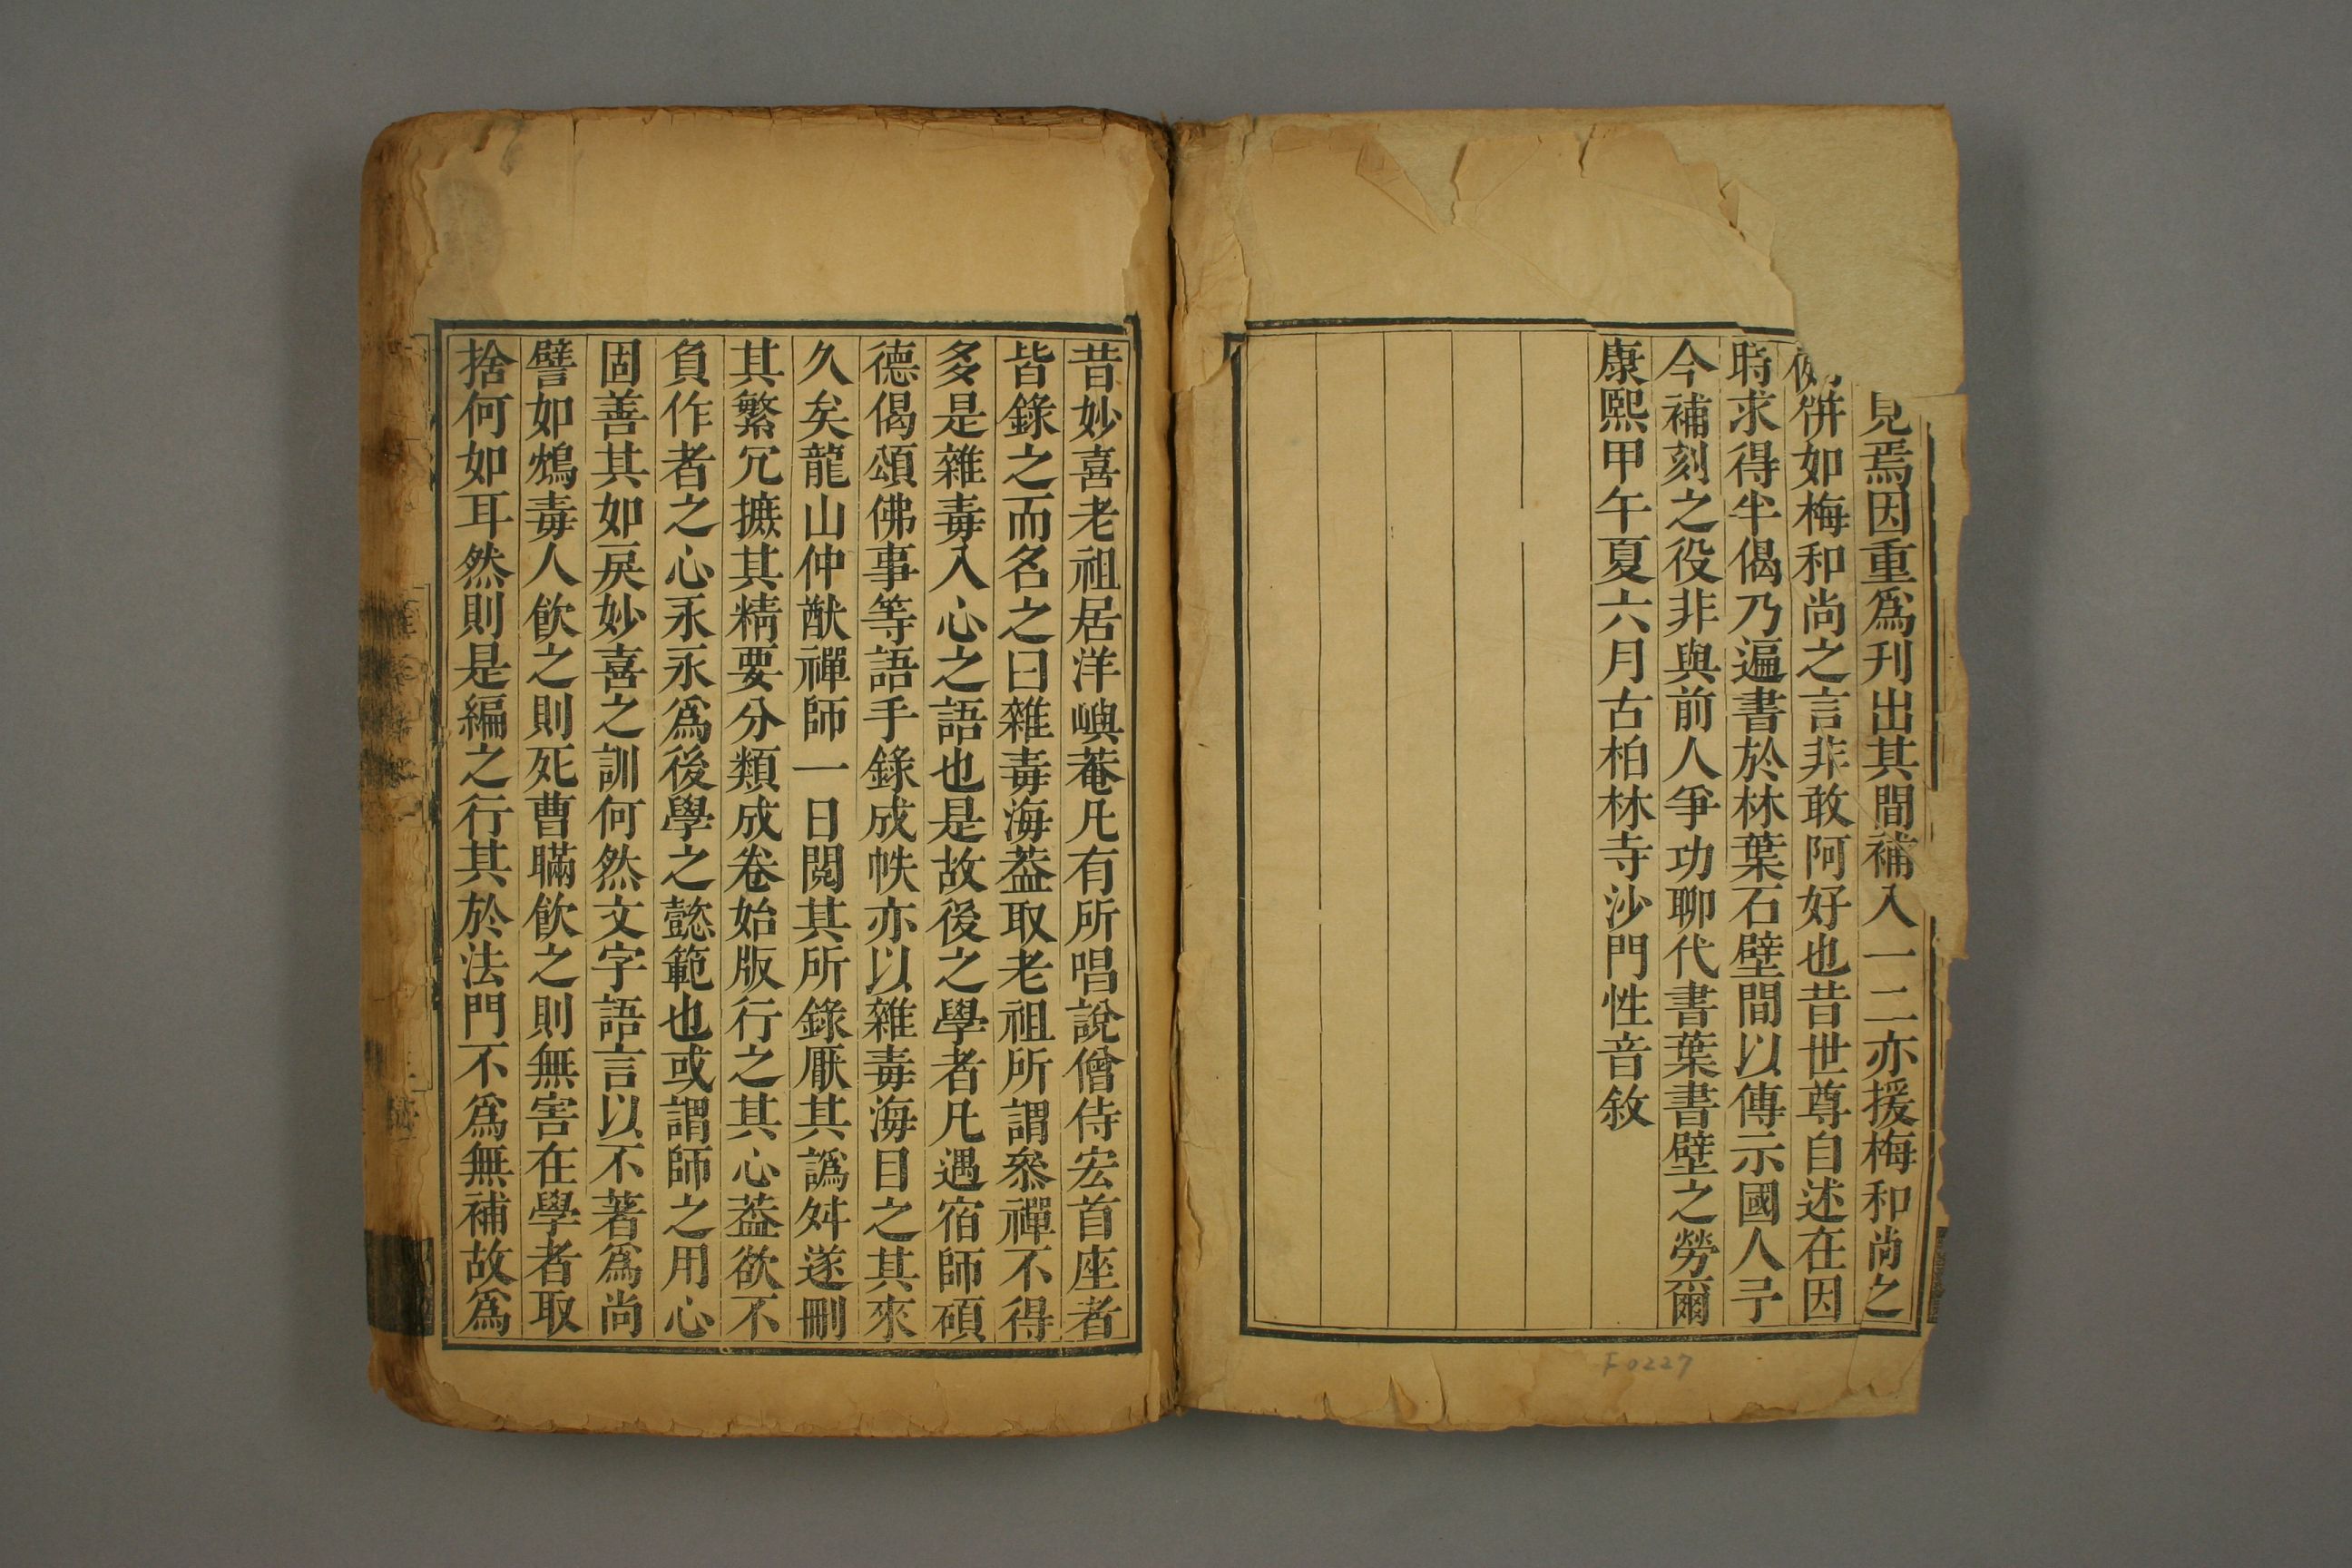 見焉因重爲刋出其間補入一二亦援梅和尚之
例併如梅和尚之言非敢阿好也昔世尊自述在因
時求得半偈乃遍書於林葉石壁間以傳示國人予
今補刻之役非與前人爭功聊代書葉書壁之勞爾
康熙甲午夏六月古柏林寺沙門性音敘
F0227
昔妙喜老祖居洋嶼菴凢有所唱說僧侍宏首座者
皆錄之而名之曰雜毒海葢取老祖所謂叅禪不得
多是雜毒入心之語也是故後之學者凢遇宿師碩
德偈頌佛事等語手錄成帙亦以雜毒海目之其來
久矣龍山仲猷禪師一日閱其所錄厭其譌舛遂刪
其繁冗摭其精要分類成卷始版行之其心葢欲不
負作者之心永永爲後學之懿範也或謂師之用心
固善其如戾妙喜之訓何然文字語言以不著爲尚
譬如鴆毒人飮之則死曹瞞飮之則無害在學者取
捨何如耳然則是編之行其於法門不爲無補故爲